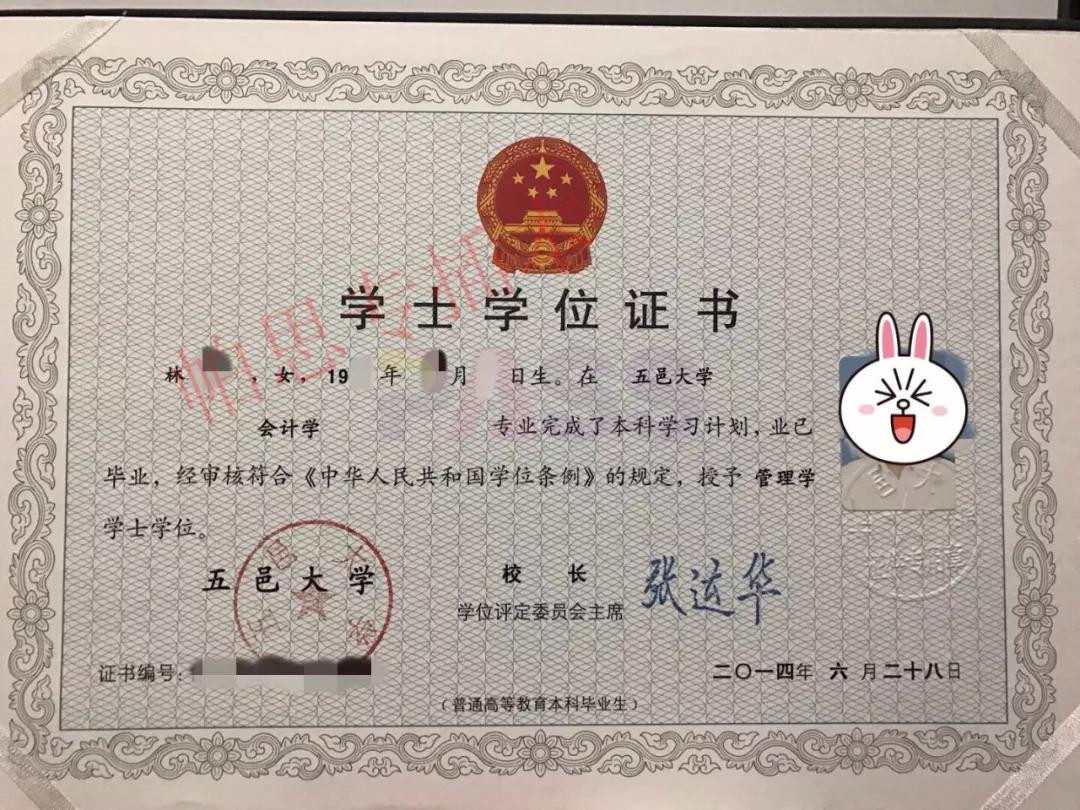 学士学位证书
林 ，女，19 年 月 日生。在 五邑大学
会计学 专业完成了本科学习计划，业已
毕业，经审核符合《中华人民共和国学位条例》的规定，授予 管理学
学士学位。
五邑大学
校 长
学位评定委员会主席
张运华
证书编号：
二〇一四年 六 月二十八日
（普通高等教育本科毕业生）
帕思专插
五邑大学